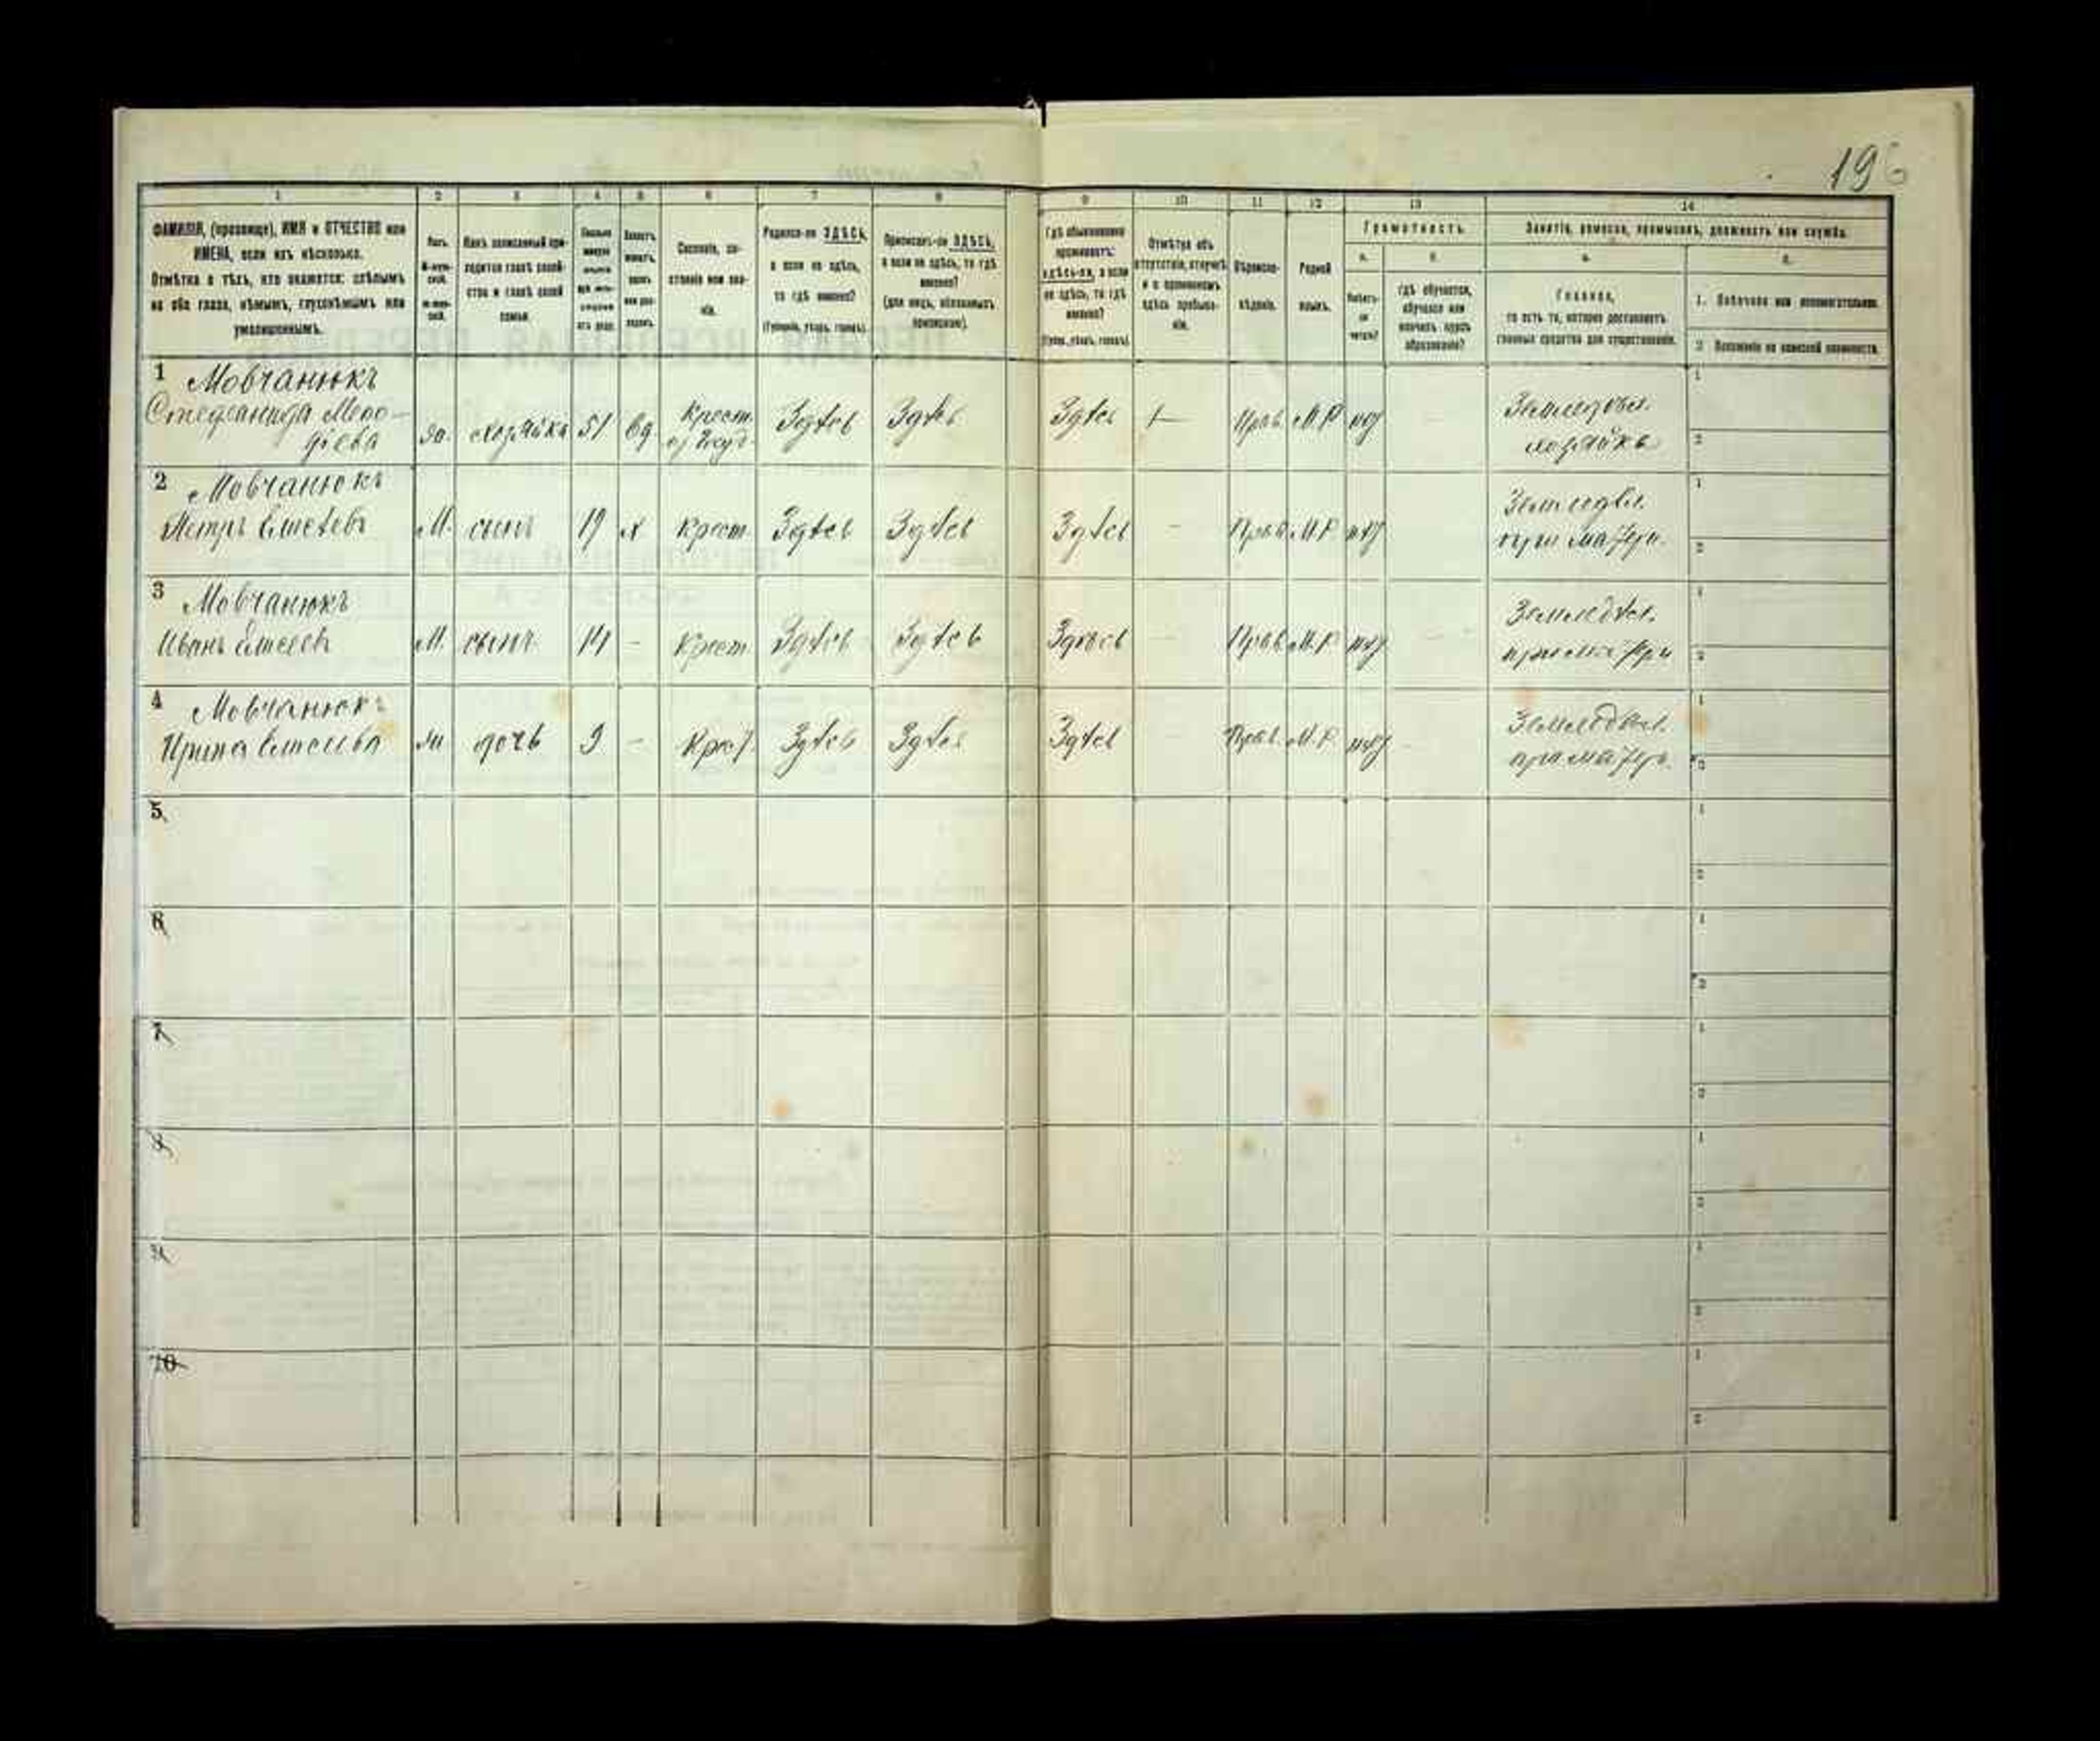 196
1 2 3 4 5 6 7 8 9 10 11 12 13 14
ФАМИЛІЯ, (прозвище), ИМЯ и ОТЧЕСТВО или
ИМЕНА, если ихъ нѣсколько.
Отмѣтка о тѣхъ, кто окажется: слѣпымъ
на оба глаза, нѣмымъ, глухонѣмымъ или
умалишеннымъ.
Полъ.
Какъ записанный при-
ходится главѣ хозяй-
ства и главѣ своей
семьи.
Сословіе, со-
стояніе или зва-
ніе.
Родился-ли ЗДѢСЬ,
а если не здѣсь,
то гдѣ именно?
(Губернія, уѣздъ, городъ).
Приписанъ-ли ЗДѢСЬ,
а если не здѣсь, то гдѣ
именно?
(для лицъ, обязанныхъ
припискою).
Гдѣ обыкновенно
проживаетъ:
здѣсь-ли, а если
не здѣсь, то гдѣ
именно?
(Губер., уѣздъ, городъ).
Отмѣтка объ
отсутствіи, отлучкѣ
и о временномъ
здѣсь пребыва-
ніи.
Вѣроиспо-
вѣданіе.
Родной
языкъ.
Грамотность.
а. б.
Умѣетъ-
ли
читать?
гдѣ обучается,
обучался или
кончилъ курсъ
образованія?
Занятіе, ремесло, промыселъ, должность или служба.
а. б.
Главное,
то есть то, которое доставляетъ
главныя средства для существованія.
1. Побочное или вспомогательное.
2 Положеніе по воинской повинности.
1 Мовчанюкъ
Стефанида Мефо-
дiева
жо. хозяйка 51 вд крест. Здѣсь Здѣсь Здѣсь — Прав. М.Р нѣт
Земледѣл.
хозяйка
1
2
2 Мовчанюкъ
Петръ
М. сынъ 19 х крест. Здѣсь Здѣсь Здѣсь - Прав. М.Р нѣт
Земледѣл.
при матери.
1
2
3 Мовчанюкъ
Иванъ
М. сынъ 14 - крест. Здѣсь Здѣсь Здѣсь - Прав М.Р нѣт
Земледѣл.
при матери
1
2
4 Мовчанюкъ
Ирина
дочь 9 - Крест. Здѣсь Здѣсь Здѣсь Прав. М.Р нѣт
Земледѣл.
при матер.
1
2
5
1
2
6
1
2
7
1
2
8
1
2
9
1
2
10
1
2